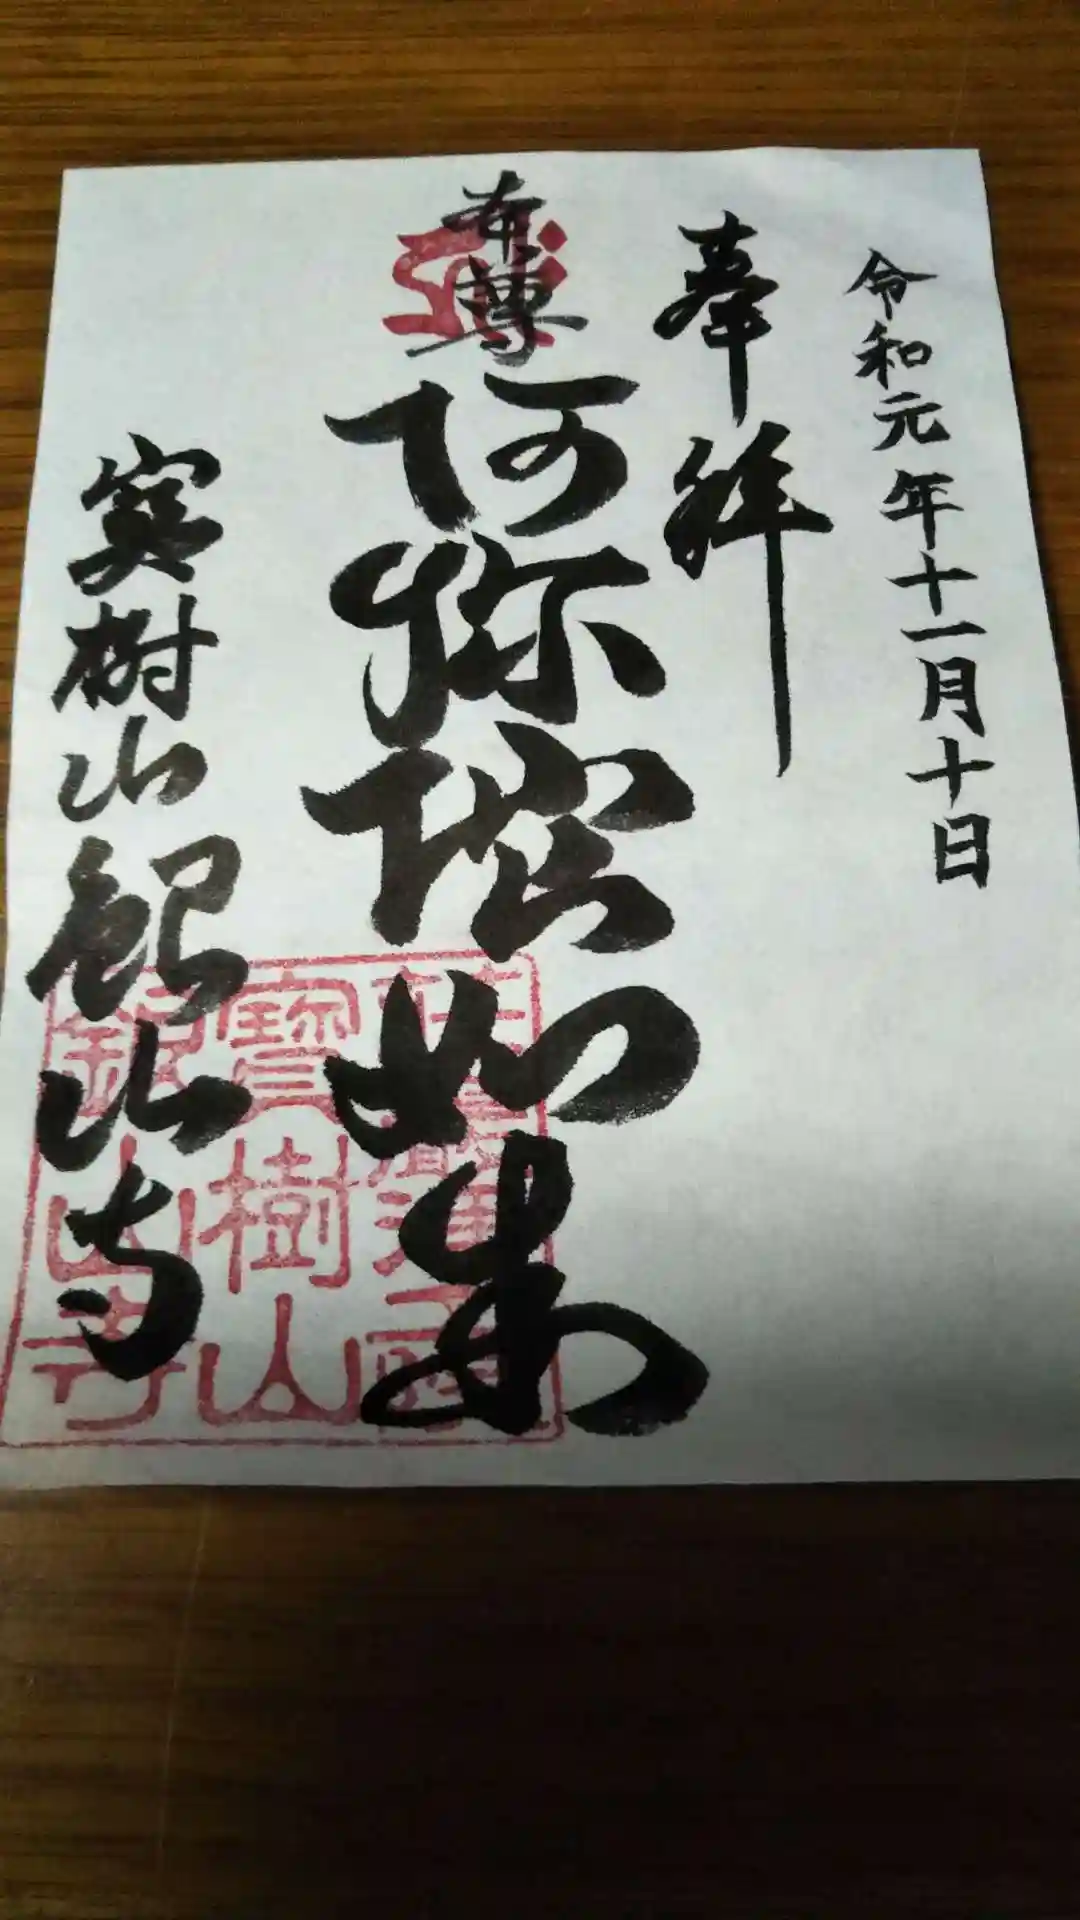 令和元年十一月十日
奉拝
本尊
阿弥陀如来
寳樹山銀山寺
寳樹山
銀山寺